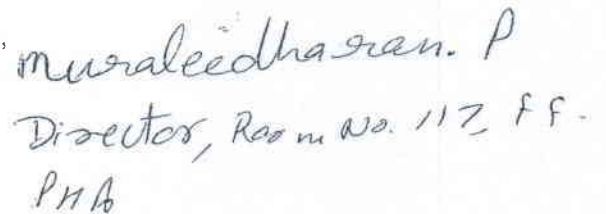 Muraleedharan. P
Director, Room No. 117, FF.
PHA